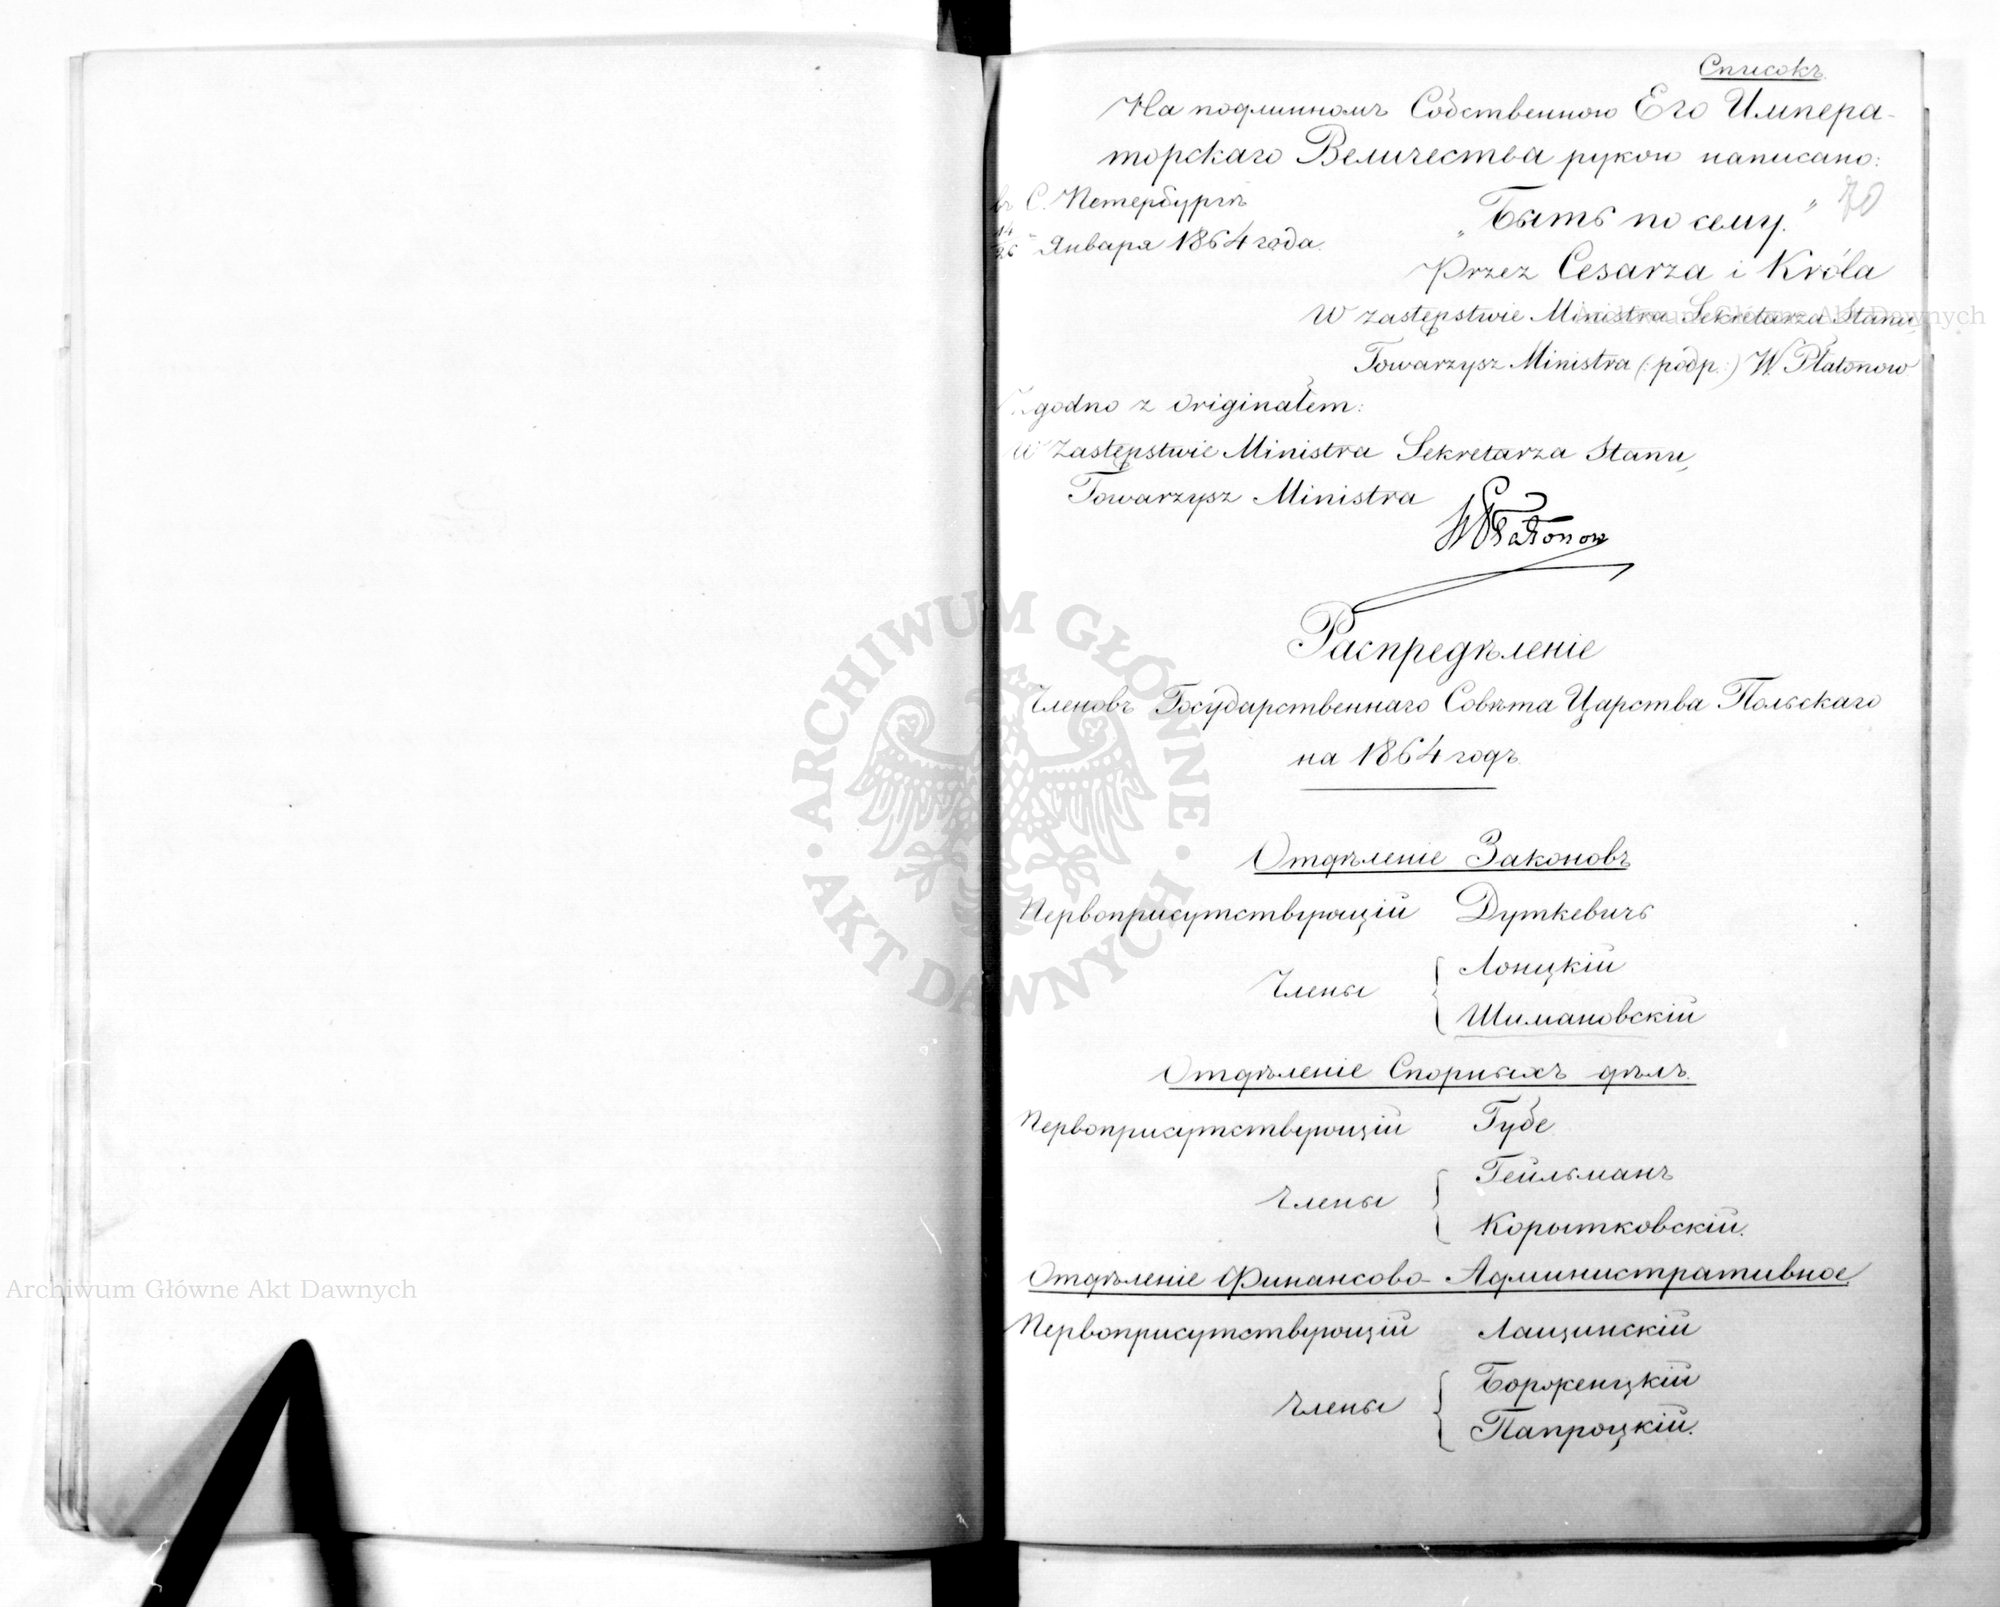 Списокъ.
На подлинномъ Собственною Его Импера-
торскаго Величества рукою написано:
въ С. Петербургѣ
„Быть по сему.”
70
14
26 Января 1864 года.
Przez Cesarza i Króla
W zastępstwie Ministra Sekretarza Stanu,
Towarzysz Ministra (: podp. :) W. Płatonow
Zgodno z originałem:
W Zastępstwie Ministra Sekretarza Stanu,
Towarzysz Ministra
W Płatonow
Распредѣленіе
Членовъ Государственнаго Совѣта Царства Польскаго
на 1864 годъ.
Отдѣленіе Законовъ
Первоприсутствующій Дуткевичъ
Члены { Лонцкій
Шимановскій
Отдѣленіе Спорныхъ дѣлъ.
Первоприсутствующій Губе
Члены { Гейльманъ
Корытковскій.
Отдѣленіе Финансово-Административное
Первоприсутствующій Лащинскій
Члены { Борженцкій
Папроцкій.
ARCHIWUM GŁÓWNE · AKT DAWNYCH ·
Archiwum Główne Akt Dawnych
Archiwum Główne Akt Dawnych